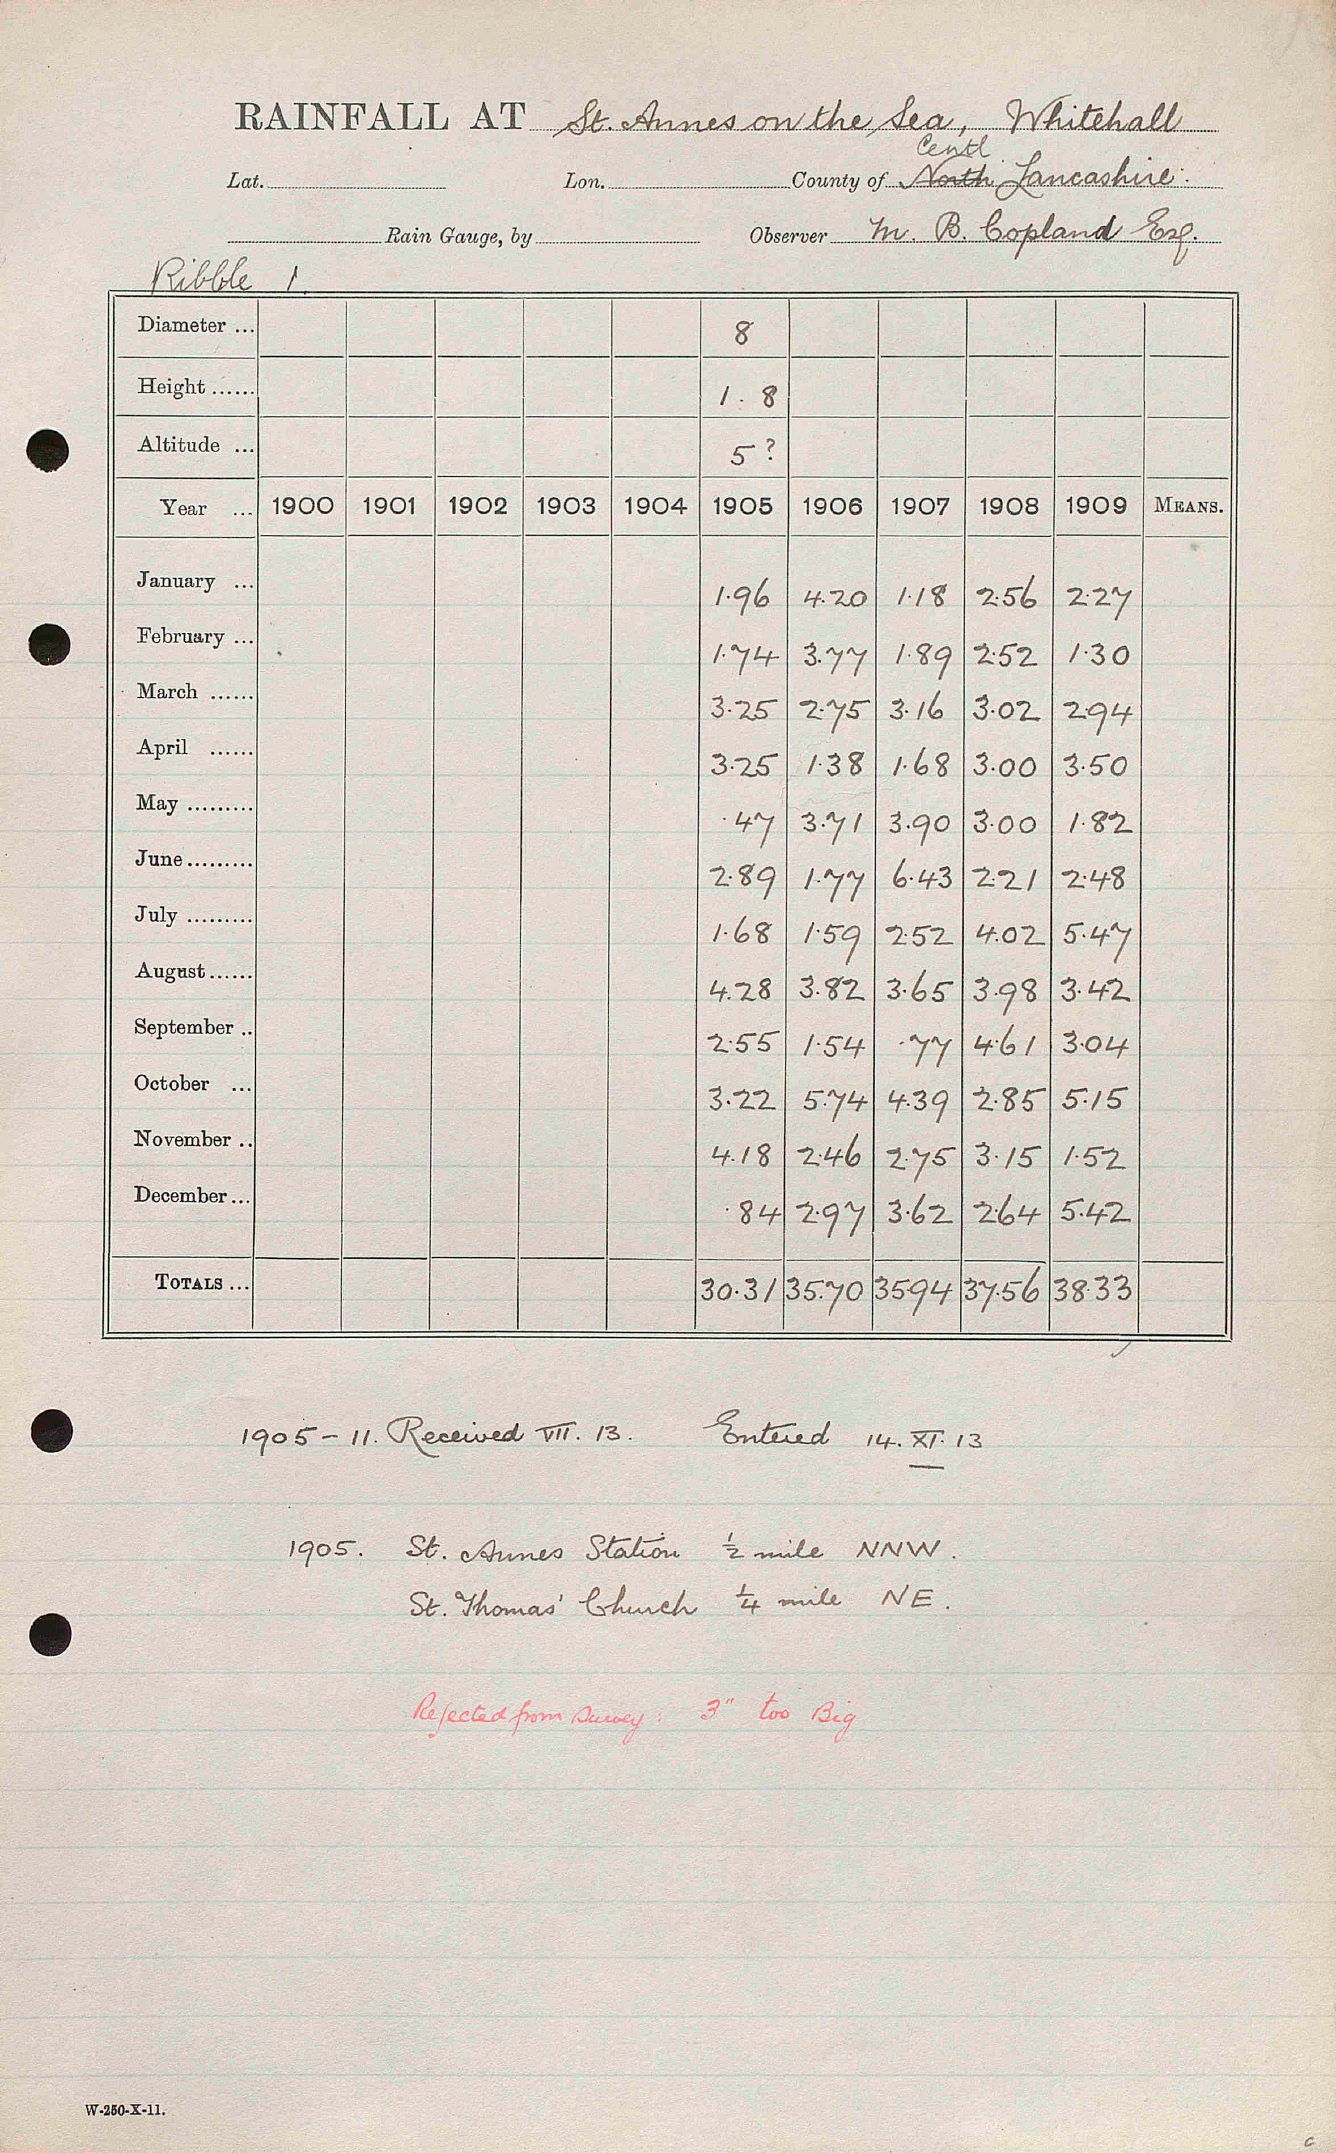 RAINFALL AT St. Annes on the Sea, Whitehall
Lat. Lon. County of North Centl Lancashire.
Rain Gauge, by Observer M. B. Copland Esq.
Ribble 1.
Diameter ... 8
Height ...... 1 . 8
Altitude ... 5 ?
Year ... 1900 1901 1902 1903 1904 1905 1906 1907 1908 1909 MEANS.
January ... 1.96 4.20 1.18 2.56 2.27
February ... 1.74 3.77 1.89 2.52 1.30
March ...... 3.25 2.75 3.16 3.02 2.94
April ...... 3.25 1.38 1.68 3.00 3.50
May ......... .47 3.71 3.90 3.00 1.82
June ......... 2.89 1.77 6.43 2.21 2.48
July ......... 1.68 1.59 2.52 4.02 5.47
August ...... 4.28 3.82 3.65 3.98 3.42
September .. 2.55 1.54 .77 4.61 3.04
October ... 3.22 5.74 4.39 2.85 5.15
November .. 4.18 2.46 2.75 3.15 1.52
December ... .84 2.97 3.62 2.64 5.42
TOTALS ... 30.31 35.70 35.94 37.56 38.33
1905 - 11. Received VII. 13. Entered 14. XI. 13
1905. St. Annes Station ½ mile NNW.
St. Thomas' Church ¼ mile NE.
Rejected from Survey: 3" too Big
W-250-X-11.
c